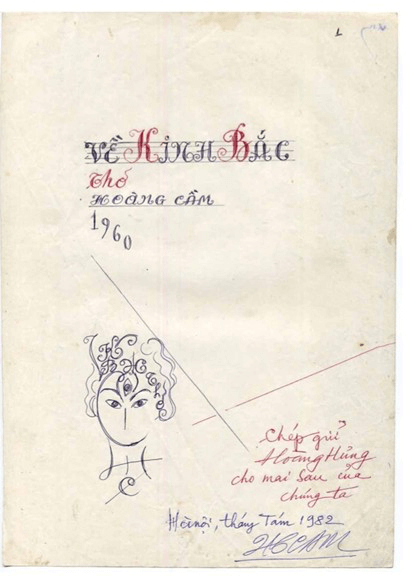 1
VỀ KINH BẮC
Thơ
HOÀNG CẦM
1960
Chép gửi
Hoàng Hưng
cho mai sau của
chúng ta
Hà nội, tháng Tám 1982
HGCAM